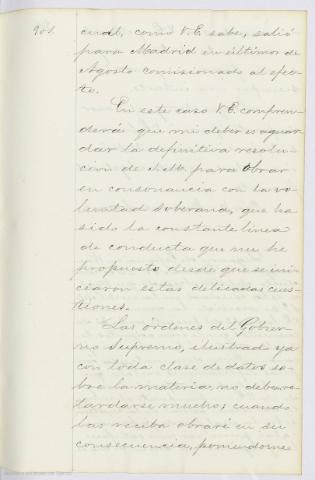 cual, como V.E. sabe, salió
para Madrid en últimos de
Agosto comisionado al efec-
to.
En este caso V.E. compren-
derá que mi deber es aguar-
dar la definitiva resolu-
ción de S.M. para obrar
en consonancia con la vo-
luntad soberana, que ha
sido la constante línea
de conducta que me he
propuesto desde que se ini-
ciaron estas delicadas cues-
tiones.
Las órdenes del Gobier-
no Supremo, ilustrado ya
con toda clase de datos so-
bre la materia, no deben re-
tardarse mucho; cuando
las reciba obraré en su
consecuencia, poniendome